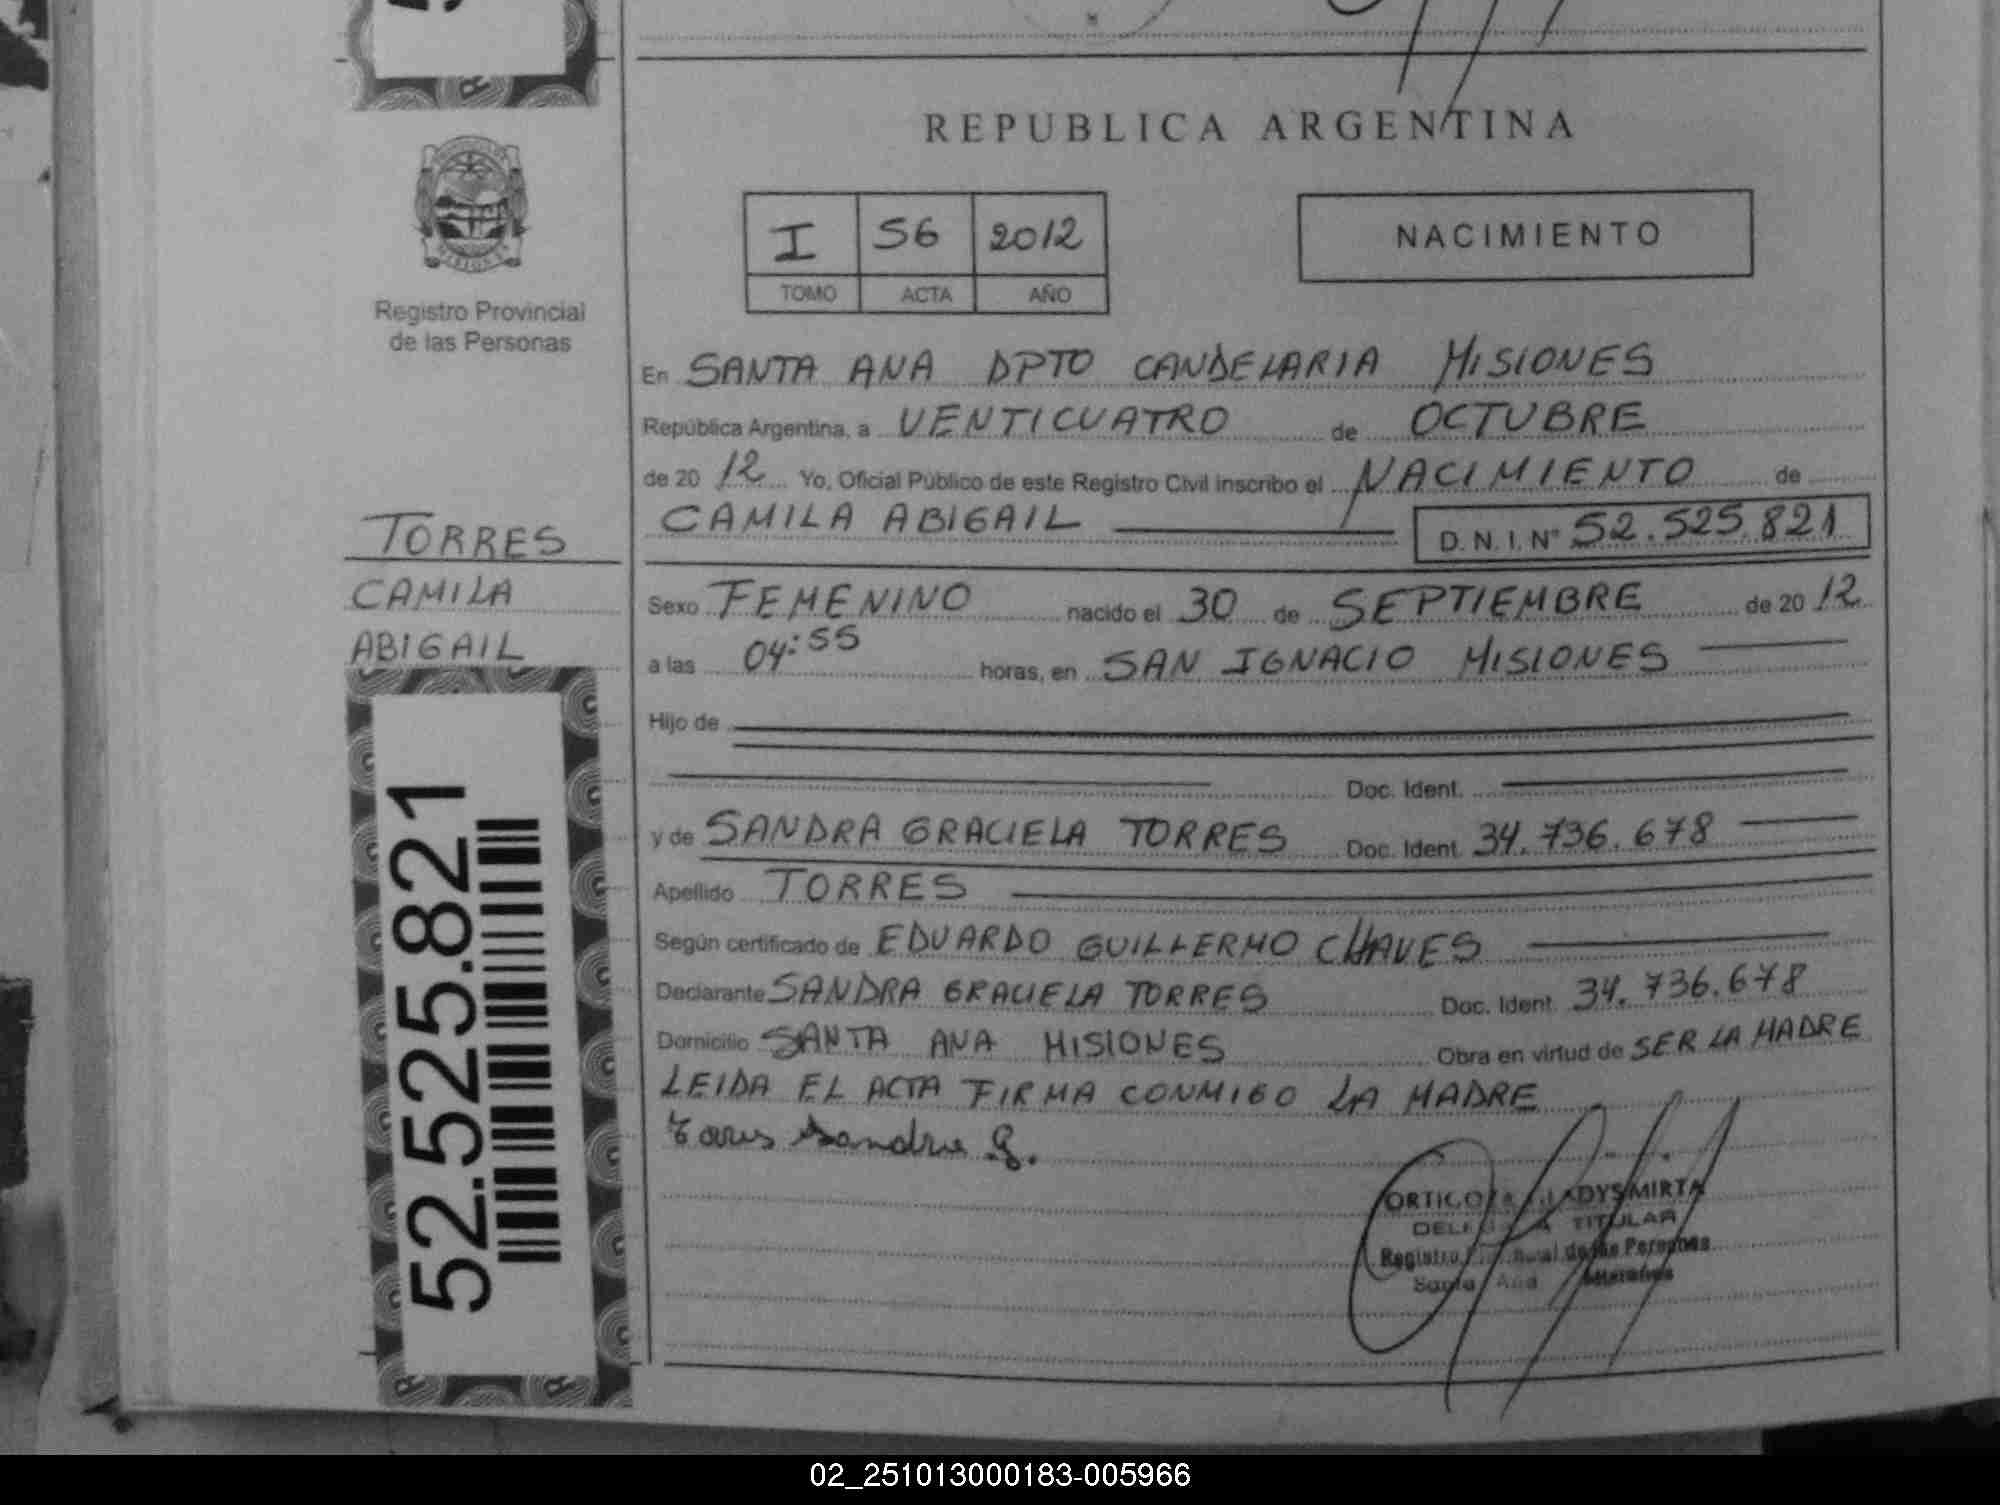 REPUBLICA ARGENTINA
I 56 2012
TOMO ACTA AÑO
NACIMIENTO
Registro Provincial
de las Personas
En SANTA ANA DPTO CANDELARIA MISIONES
República Argentina, a VENTICUATRO de OCTUBRE
de 20 12 Yo, Oficial Público de este Registro Civil inscribo el NACIMIENTO de
CAMILA ABIGAIL D. N. I. Nº 52.525.821
TORRES
CAMILA
ABIGAIL
Sexo FEMENINO nacido el 30 de SEPTIEMBRE de 20 12
a las 04:55 horas, en SAN IGNACIO MISIONES
Hijo de
Doc. Ident.
y de SANDRA GRACIELA TORRES Doc. Ident. 34.736.678
Apellido TORRES
Según certificado de EDUARDO GUILLERMO CHAVES
Declarante SANDRA GRACIELA TORRES Doc. Ident. 34.736.678
Domicilio SANTA ANA MISIONES Obra en virtud de SER LA MADRE
LEIDA EL ACTA FIRMA CONMIGO LA MADRE
Torres Sandra G.
52.525.821
MIRTA
TITULAR
Registro de las Personas
Santa Ana Misiones
02_251013000183-005966